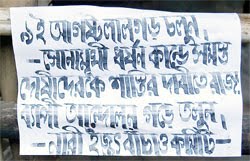 ৯ই আগষ্ট লালগড় চলুন।
– সোনামুখী ধর্ষন কান্ডে সমস্ত
দোষীদেরকে শাস্তির দাবীতে রাজ্য
ব্যাপী আন্দোলন গড়ে তুলুন।
– নারী ইজ্জৎ বাঁচাও কমিটি –